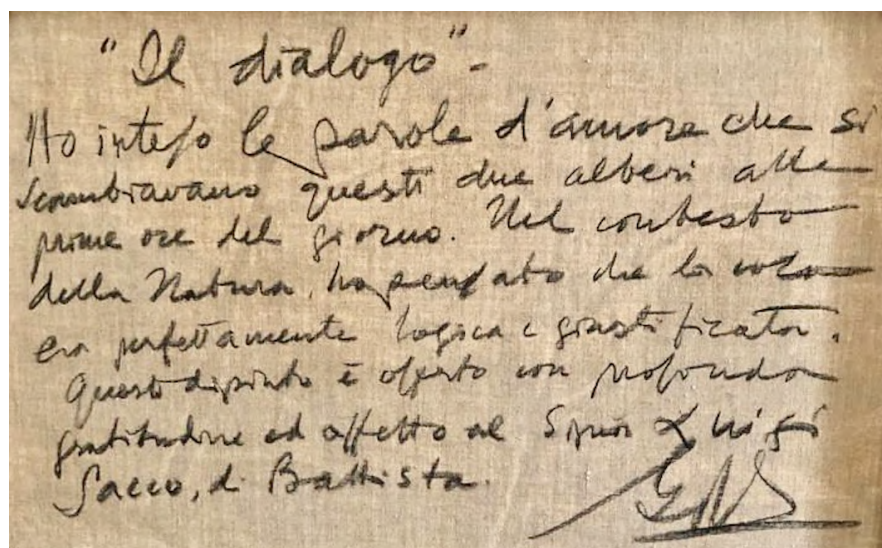 "Il dialogo"-
Ho inteso le parole d'amore che si
scambiavano questi due alberi alle
prime ore del giorno. Nel contesto
della Natura, ho pensato che la cosa
era perfettamente logica e giustificata.
Questo dipinto è offerto con profonda
gratitudine ed affetto al Signor Luigi
Sacco, di Battista.